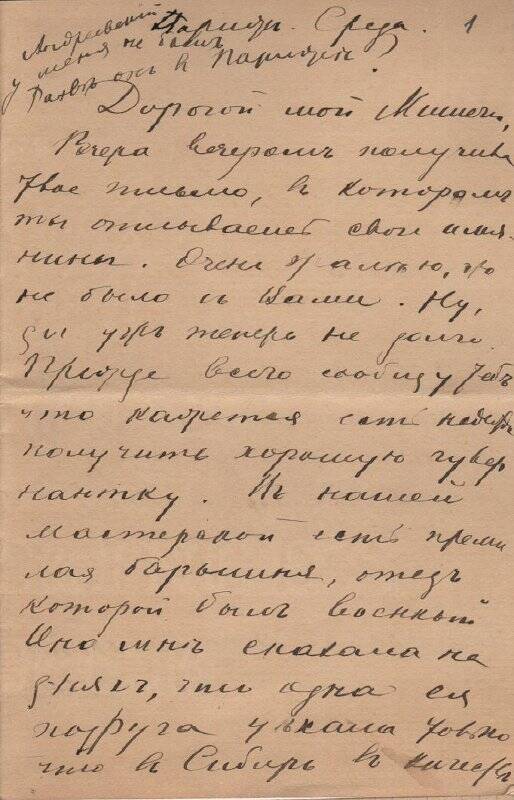 Андреевский
у меня не былъ
Развѣ онъ въ Парижѣ?
Парижъ. Среда. 1
Дорогой мой Мишечка,
Вчера вечеромъ получила
твое письмо, въ которомъ
ты описываешь свои имя-
нины. Очень жалѣю, что
не была съ Вами. Ну,
да ужъ теперь не долго.
Прежде всего сообщу тебѣ
что кажется есть надежда
получить хорошую гувер
нантку. Въ нашей
мастерской есть преми
лая барышня, отецъ
которой былъ военный
Она мнѣ сказала на
дняхъ, что одна ея
подруга уѣхала только
что въ Сибирь въ качествѣ